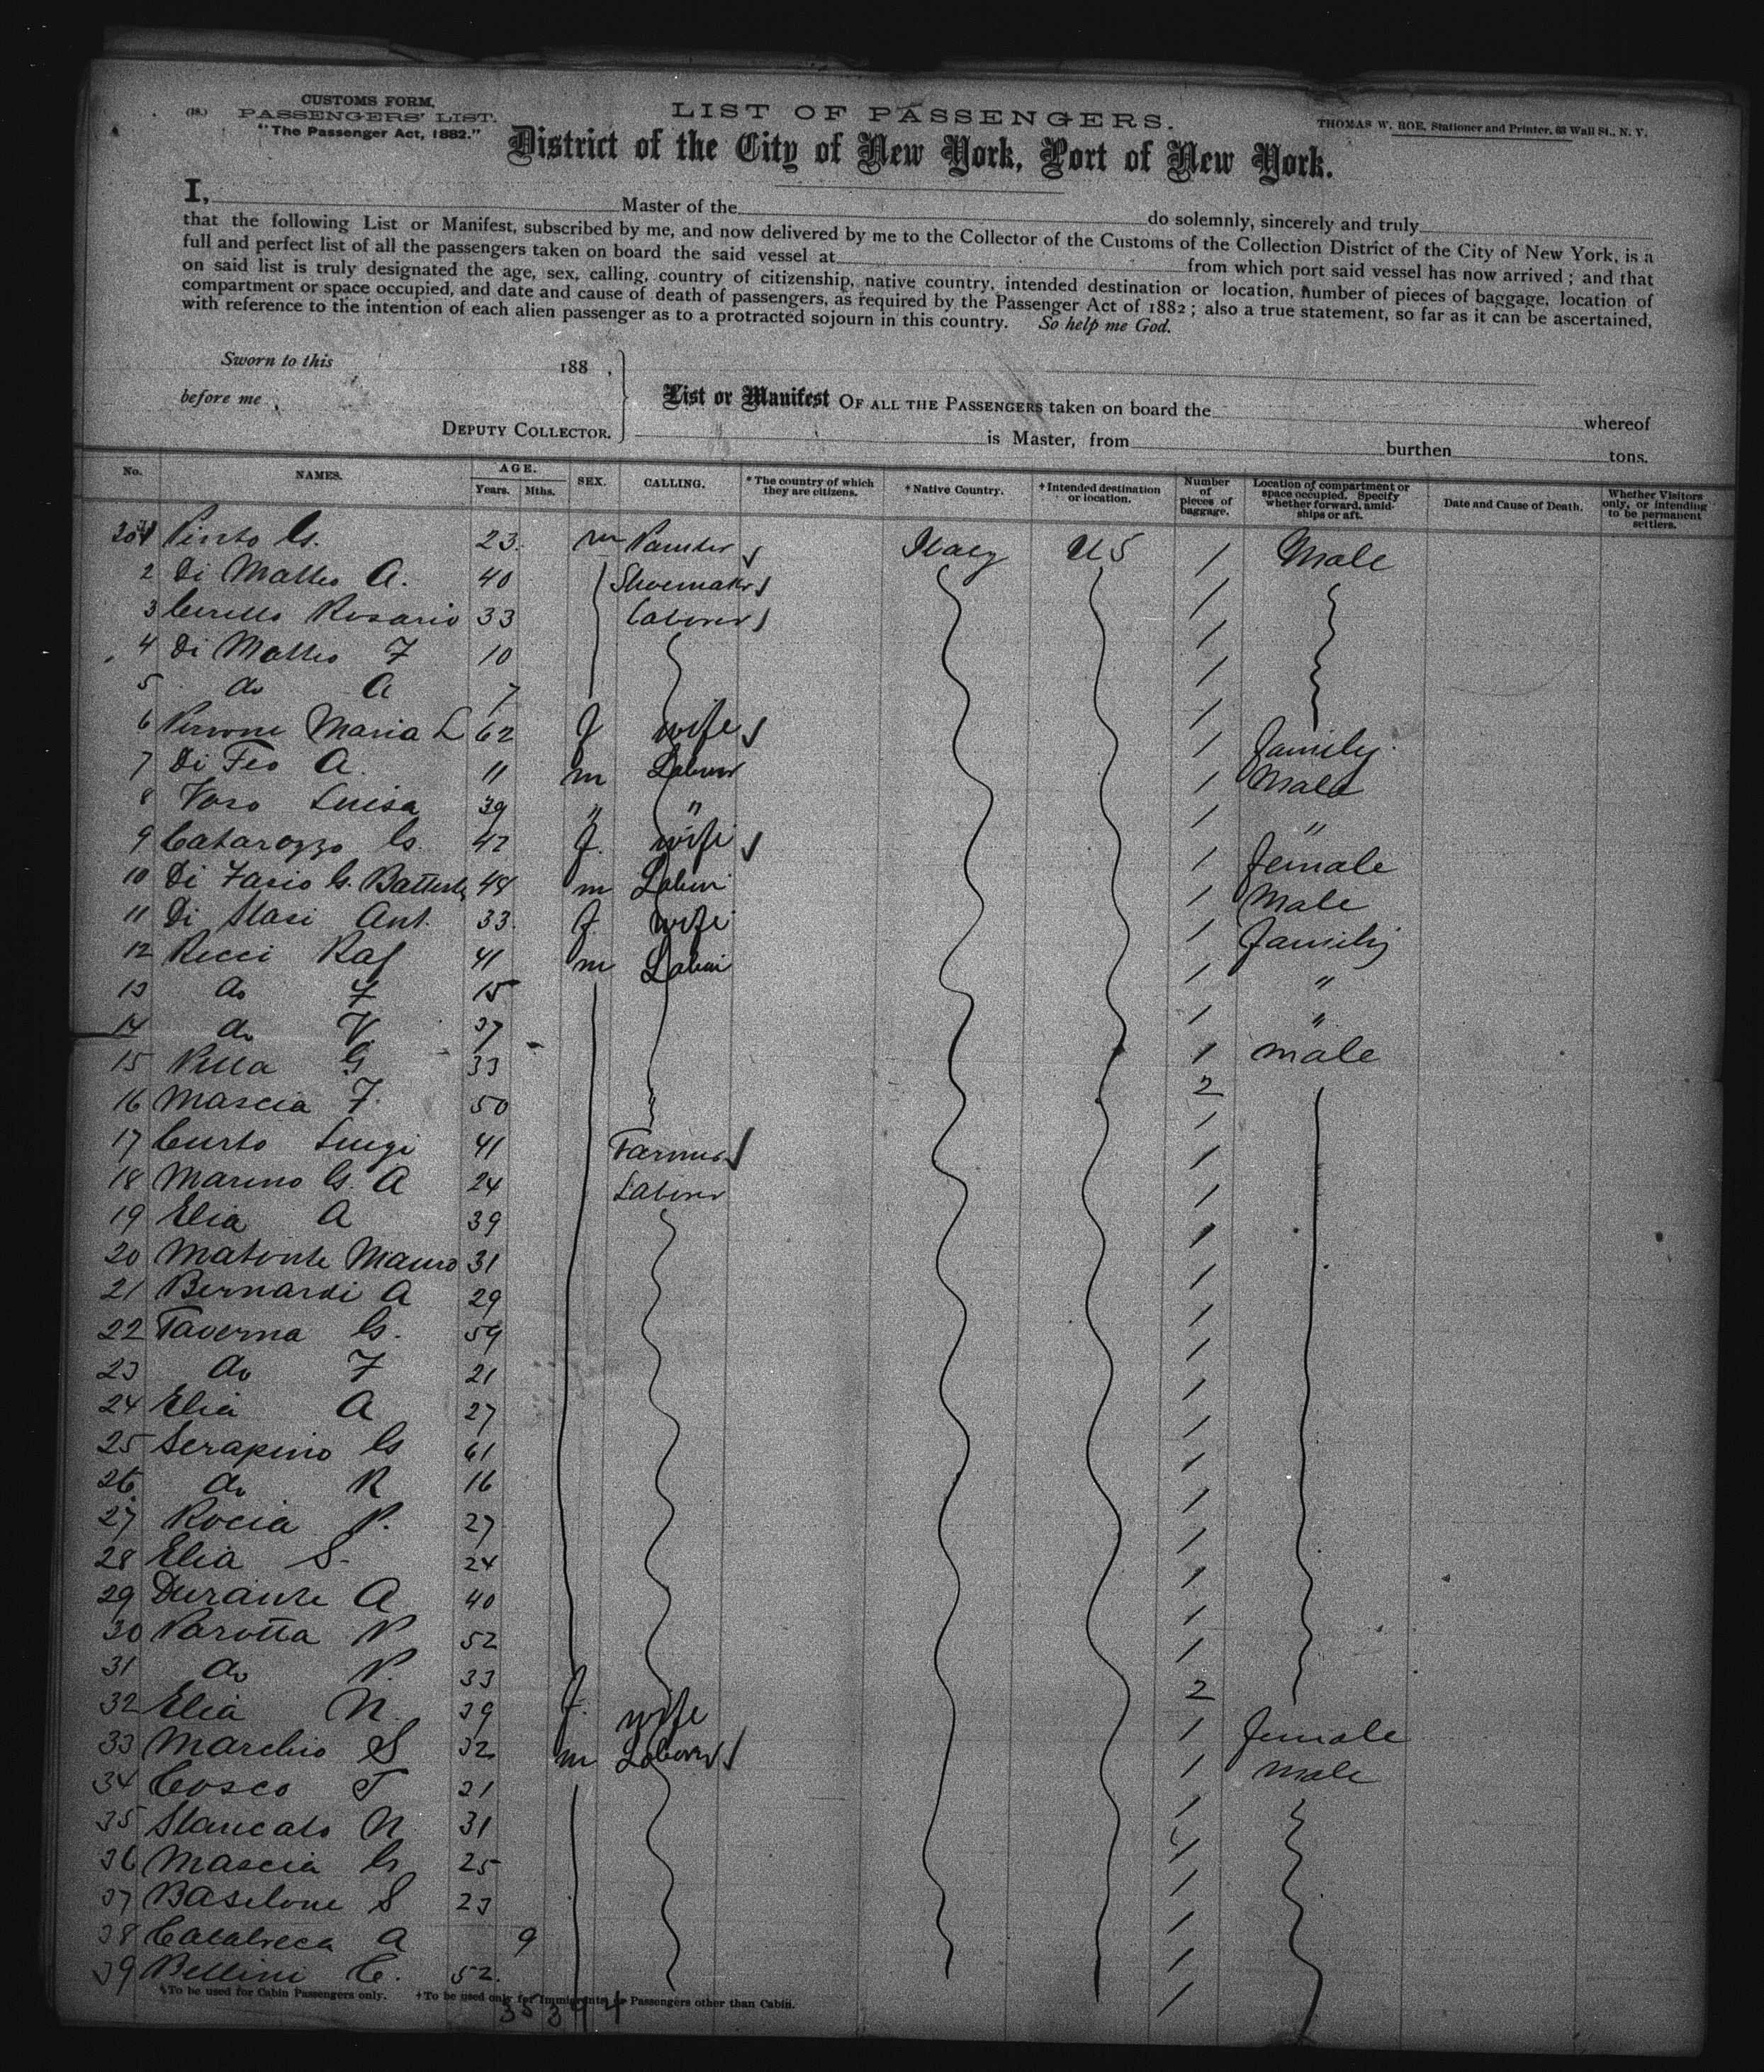 (18.) CUSTOMS FORM,
PASSENGERS' LIST.
"The Passenger Act, 1882."
LIST OF PASSENGERS.
THOMAS W. ROE, Stationer and Printer, 63 Wall St., N. Y.
District of the City of New York, Port of New York.
I, Master of the do solemnly, sincerely and truly
that the following List or Manifest, subscribed by me, and now delivered by me to the Collector of the Customs of the Collection District of the City of New York, is a
full and perfect list of all the passengers taken on board the said vessel at from which port said vessel has now arrived; and that
on said list is truly designated the age, sex, calling, country of citizenship, native country, intended destination or location, number of pieces of baggage, location of
compartment or space occupied, and date and cause of death of passengers, as required by the Passenger Act of 1882; also a true statement, so far as it can be ascertained,
with reference to the intention of each alien passenger as to a protracted sojourn in this country. So help me God.
Sworn to this 188 ,
before me
DEPUTY COLLECTOR.
List or Manifest OF ALL THE PASSENGERS taken on board the whereof
is Master, from burthen tons.
No. NAMES. AGE. Years. Mths. SEX. CALLING. *The country of which they are citizens. +Native Country. +Intended destination or location. Number of pieces of baggage. Location of compartment or space occupied. Specify whether forward, amidships or aft. Date and Cause of Death. Whether Visitors only, or intending to be permanent settlers.
Pinto G. 23 m Italy US 1 Male
2 Di Matteo A. 40 Shoemaker 1
3 Cirello Rosario 33 Laborer 1
4 Di Matteo F 10 1
5 do A 7 1
6 Maria L 62 f wife 1 family
7 Di Feo A 11 m Laborer 1 Male
8 Voso Luisa 39 " " 1 "
9 Catarozzo G. 42 f. wife 1 female
10 Di Fasio G. Battista 48 m Labor 1 Male
11 Di Stasi Ant. 33 f. wife 1 family
12 Ricci Raf 41 m Labor 1 "
13 do F 15 1 "
14 do V. 37 1 male
15 Pella G 33 2
16 Mascia F. 50 " 1
17 Curto Luigi 41 Farmer 1
18 Marino G. A 24 Laborer 1
19 Elia A 39 1
20 Matonte Mauro 31 1
21 Bernardi A 29 1
22 Taverna G. 59 1
23 do F 21 1
24 Elia A 27 1
25 Serapino G 61 1
26 do R 16 1
27 Rocia P. 27 1
28 Elia S. 24 1
29 Durante A 40 1
30 Parotta P 52 1
31 do P. 33 2
32 Elia N. 39 f. wife 1 female
33 Marchio S 32 m Laborer 1 male
34 Cosco T 21 1
35 Stancato N 31
36 Mascia G 25 1
37 Basilone S 23 1
38 A 9 1
39 Bellini C. 52. 1
*To be used for Cabin Passengers only. +To be used only for Immigrants, or Passengers other than Cabin.